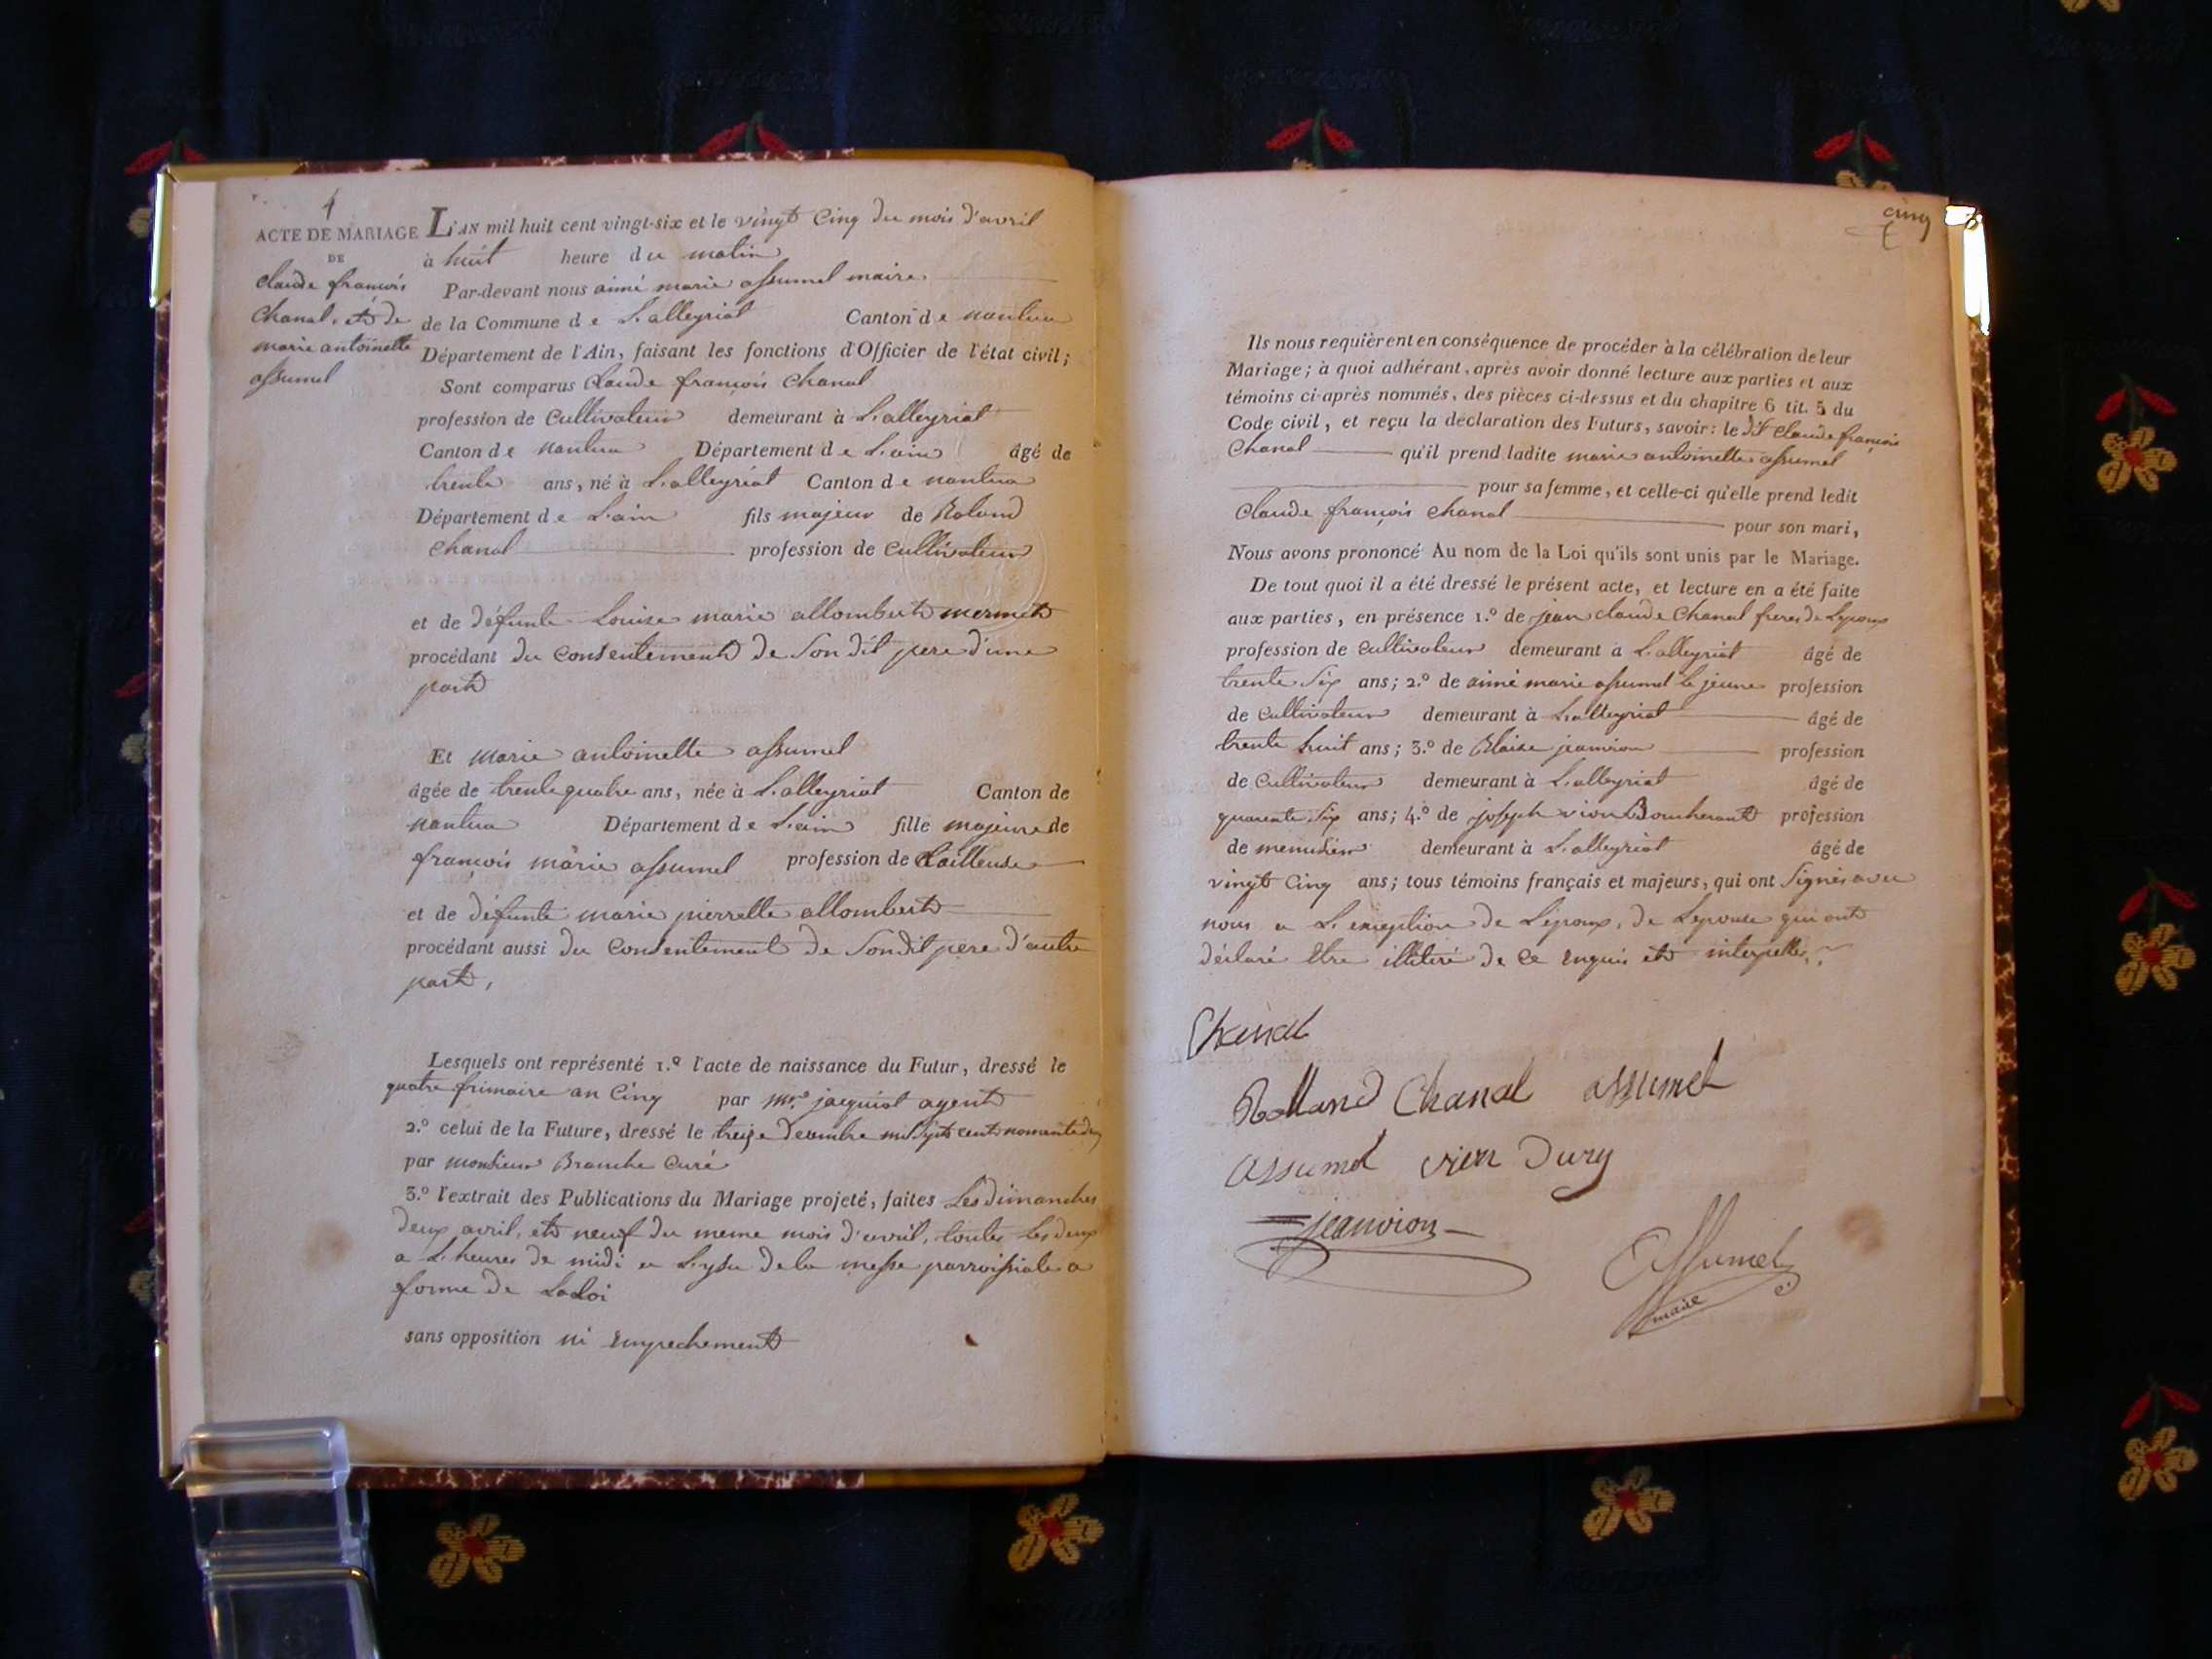 4
ACTE DE MARIAGE
DE
Claude françois
Chanal, et de
marie antoinette
assumel
L'AN mil huit cent vingt-six et le vingt Cinq du mois d'avril
à huit heure du matin
Par-devant nous aimé marie assumel maire
de la Commune de L'alleyriat Canton de nantua
Département de l'Ain, faisant les fonctions d'Officier de l'état civil;
Sont comparus Claude françois Chanal
profession de Cultivateur demeurant à L'alleyriat
Canton de nantua Département de L'ain âgé de
trente ans, né à L'alleyriat Canton de nantua
Département de L'ain fils majeur de Roland
Chanal profession de Cultivateur
et de défunte Louise marie allombert mermet
procédant du Consentement de Son dit pere d'une
part
Et Marie antoinette assumel
âgée de trente quatre ans, née à L'alleyriat Canton de
nantua Département de L'ain fille majeure de
françois marie assumel profession de
et de défunte marie pierrette allombert
procédant aussi du Consentement de Sondit pere d'autre
part,
Lesquels ont représenté 1.º l'acte de naissance du Futur, dressé le
quatre frimaire an Cinq par jacquiot agent
2.º celui de la Future, dressé le treize decembre mil Sept cent
par monsieur Branche Curé
3.º l'extrait des Publications du Mariage projeté, faites Les dimanches
deux avril, et neuf du meme mois d'avril, toutes Les deux
a L'heures de midi a L'ysu de la messe parroissiale a
forme de LaLoi
sans opposition ni Empechement
cinq
Ils nous requièrent en conséquence de procéder à la célébration de leur
Mariage; à quoi adhérant, après avoir donné lecture aux parties et aux
témoins ci-après nommés, des pièces ci-dessus et du chapitre 6 tit. 5 du
Code civil, et reçu la declaration des Futurs, savoir: le dit Claude françois
Chanal qu'il prend ladite marie antoinette assumel
pour sa femme, et celle-ci qu'elle prend ledit
Claude françois Chanal pour son mari,
Nous avons prononcé Au nom de la Loi qu'ils sont unis par le Mariage.
De tout quoi il a été dressé le présent acte, et lecture en a été faite
aux parties, en présence 1.º de jean claude Chanal frere de Lepoux
profession de Cultivateur demeurant à L'alleyriat âgé de
trente Six ans; 2.º de aimé marie assumel le jeune profession
de Cultivateur demeurant à L'alleyriat âgé de
trente huit ans; 3.º de Blaise jeanvion profession
de Cultivateur demeurant à L'alleyriat âgé de
quarente Six ans; 4.º de joseph vion profession
de menusier demeurant à L'alleyriat âgé de
vingt Cinq ans; tous témoins français et majeurs, qui ont Signés avec
nous a L'exception de Lepoux, de Lepouse qui ont
déclaré Etre illitéré de ce Enquis et interpellés
Chanal
Rolland Chanal assumel
assumel vion Dury
jeanvion
Assumel
maire